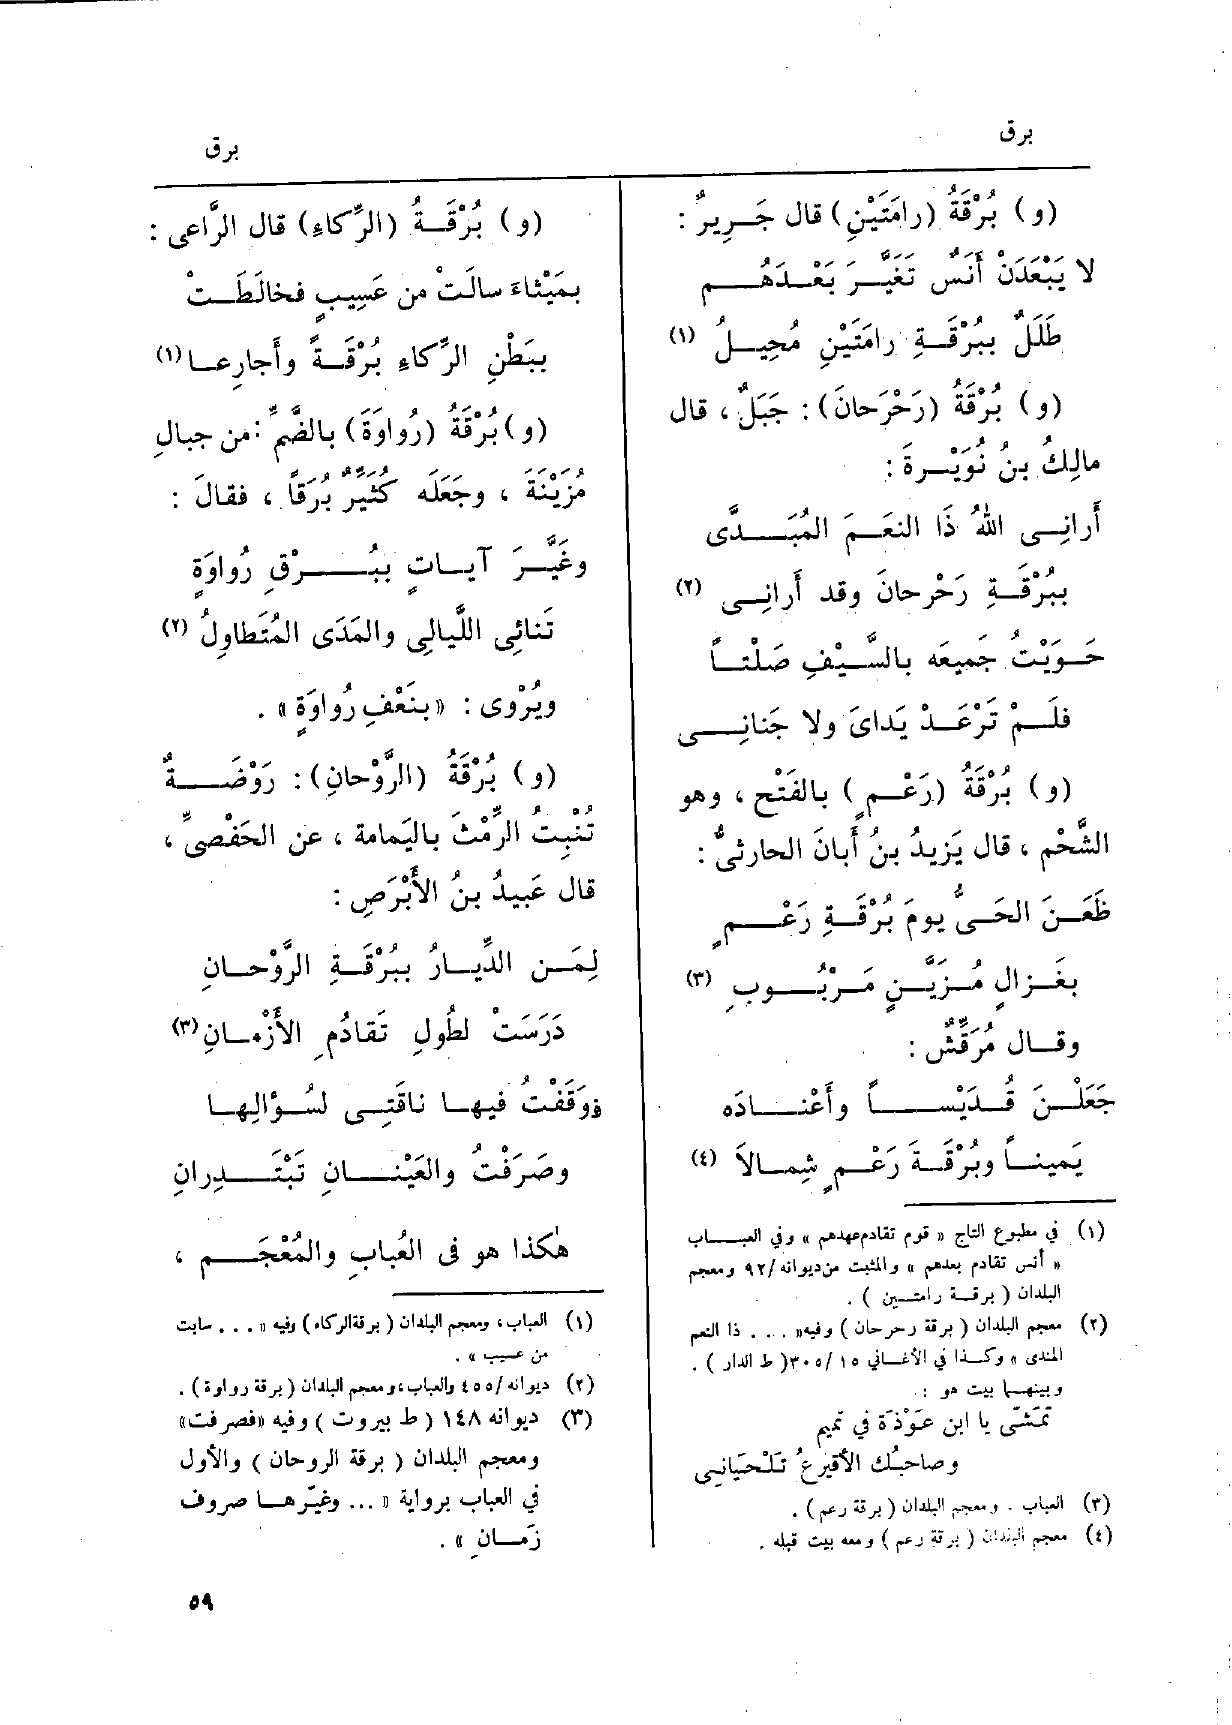 برق
برق
(و) بُرْقَةُ (رامَتَيْنِ) قال جَرِيرٌ :
لا يَبْعَدَنْ أَنَسٌ تَغَيَّرَ بَعْدَهُم
طَلَلٌ بِبُرْقَةِ رامَتَيْنِ مُحِيلُ (١)
(و) بُرْقَةُ (رَحْرَحانَ) : جَبَلٌ ، قال
مالِكُ بنُ نُوَيْرةَ :
أَرانِى اللهُ ذَا النعَمَ المُبَدَّى
بِبُرْقَةِ رَحْرحانَ وقد أَرانِى (٢)
حَوَيْتُ جَمِيعَه بالسَّيْفِ صَلْتاً
فلَمْ تَرْعَدْ يَداىَ ولا جَنانِى
(و) بُرْقَةُ (رَعْمٍ) بالفَتْحِ ، وهو
الشَّحْم ، قال يَزِيدُ بنُ أَبانَ الحارثىُّ :
ظَعَنَ الحَىُّ يومَ بُرْقَةِ رَعْمٍ
بغَزالٍ مُزَيَّنٍ مَرْبُوبِ (٣)
وقال مُرَقِّشٌ :
جَعَلْنَ قُدَيْساً وأَعْنادَه
يَمِيناً وبُرْقَةَ رَعْمٍ شِمالاَ (٤)
(١) في مطبوع التاج « قوم تقادم عهدهم » وفي العباب
« أنس تقادم بعدهم » والمثبت من ديوانه /٩٢ ومعجم
البلدان ( برقة رامتين ) .
(٢) معجم البلدان ( برقة رحرحان ) وفيه« . . . ذا النعم
المندى » وكذا في الأغاني ١٥ /٣٠٥( ط الدار ) .
وبينهما بيت هو :
تمَشّى يا ابن عَوْذَة في تميم
وصاحبُك الأقيرعُ تَلْحَيانِي
(٣) العباب . ومعجم البلدان ( برقة رعم ) .
(٤) معجم البلدان ( برقة رعم ) ومعه بيت قبله .
(و) بُرْقَةُ (الرِّكاءِ) قال الرَّاعى :
بمَيْثاءَ سالَتْ من عَسِيبٍ فخالَطَتْ
ببَطْنِ الرِّكاءِ بُرْقَةً وأَجارِعا (١)
(و) بُرْقَةُ (رُواوَةَ) بالضَّمِّ : من جبالِ
مُزَيْنَةَ ، وجَعَلَه كثَيِّرٌ بُرَقاً ، فقالَ :
وغَيَّرَ آياتٍ ببُرْقِ رُواوَةٍ
تَنائِى اللَّيالِى والمَدَى المُتَطاوِلُ (٢)
ويُرْوى : « بنَعْفِ رُواوَةٍ » .
(و) بُرْقَةُ (الرَّوْحانِ) : رَوْضَةٌ
تُنْبِتُ الرِّمْثَ باليَمامة ، عن الحَفْصىِّ ،
قال عَبِيدُ بنُ الأَبْرَصِ :
لِمَن الدِّيارُ ببُرْقَةِ الرَّوْحانِ
دَرَسَتْ لطُولِ تَقادُمِ الأَزْمانِ (٣)
فوَقَفْتُ فيها ناقَتِى لسُؤالِها
وصَرَفْتُ والعَيْنانِ تَبْتَدِرانِ
هٰكذا هو فى العُبابِ والمُعْجَمِ ،
(١) العباب ، ومعجم البلدان ( برقة الركاء ) وفيه « . . . سابت
من عسيب » .
(٢) ديوانه /٤٥٥ والعباب ، ومعجم البلدان ( برقة رواوة ) .
(٣) ديوانه ١٤٨ ( ط بيروت ) وفيه «فصرفت»
ومعجم البلدان ( برقة الروحان ) والأول
في العباب برواية « ... وغيّرها صروف
زَمانِ » .
٥٩